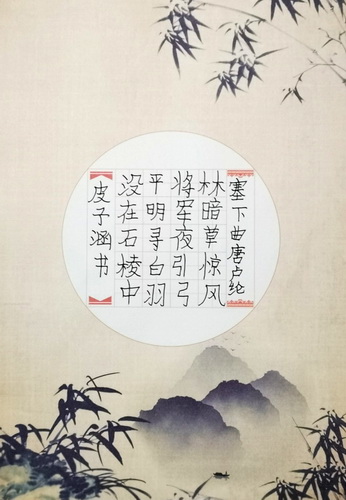 塞下曲唐卢纶
林暗草惊风
将军夜引弓
平明寻白羽
没在石棱中
皮子涵书